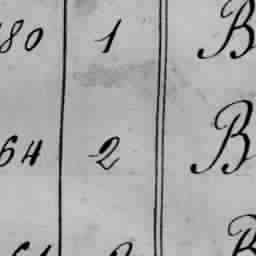 80 1 B
64 2 B